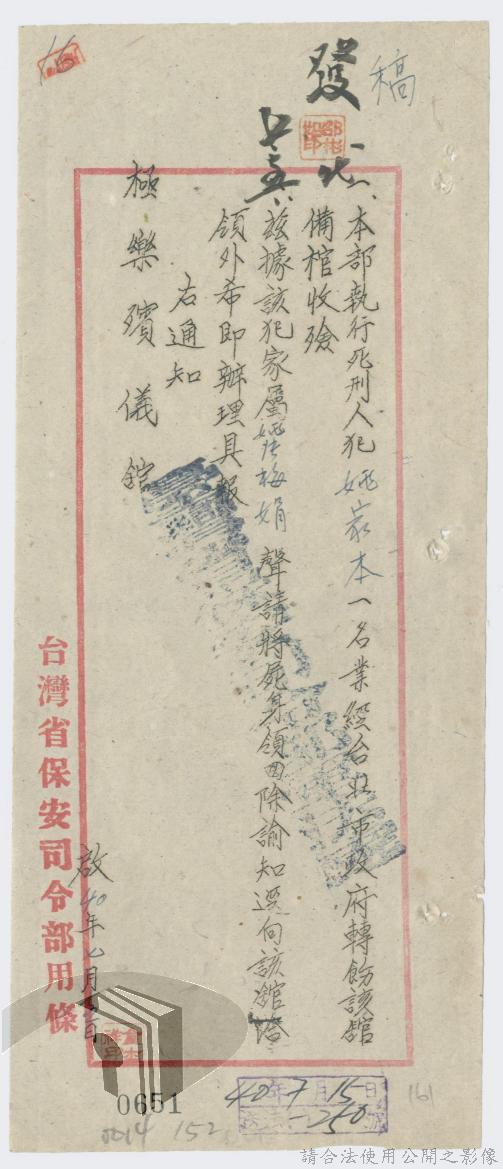 稿
發
一、本部執行死刑人犯姚家本一名業經台北市政府轉飭該舘
備棺收殮
二、茲據該犯家屬姚張梅娟聲請將屍身領回除諭知逕向該舘洽
領外希即辦理具報
右通知
極樂殯儀舘
啟40年七月 日
台灣省保安司令部用條
0651
40年7月15日
250
0014 152
161
請合法使用公開之影像